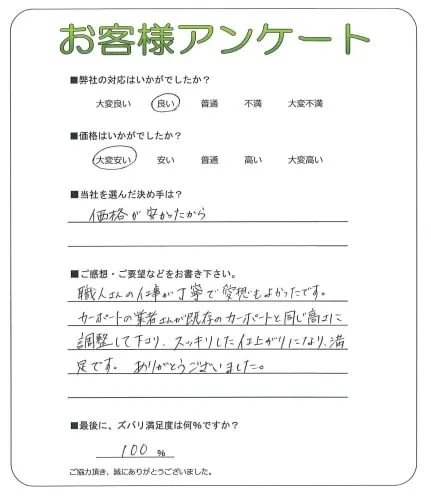 お客様アンケート
■弊社の対応はいかがでしたか？
大変良い 良い 普通 不満 大変不満
■価格はいかがでしたか？
大変安い 安い 普通 高い 大変高い
■当社を選んだ決め手は？
価格が安かったから
■ご感想・ご要望などをお書き下さい。
職人さんの仕事が丁寧で愛想もよかったです。
カーポートの業者さんが既存のカーポートと同じ高さに
調整して下さり、スッキリした仕上がりになり、満
足です。ありがとうございました。
■最後に、ズバリ満足度は何％ですか？
100 %
ご協力頂き、誠にありがとうございました。